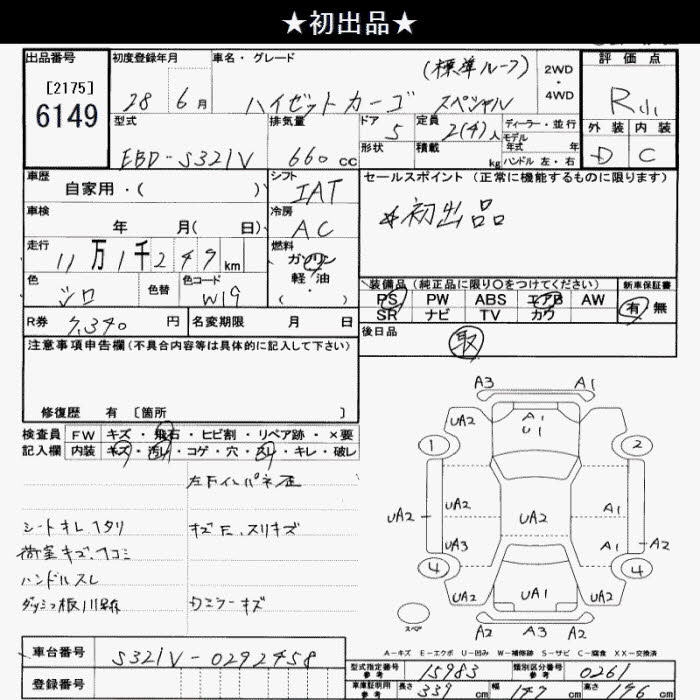 ★初出品★
出品番号
[2175]
6149
初度登録年月
28 6月
車名・グレード
ハイゼットカーゴ スペシャル
(標準ルーフ)
2WD
・
4WD
評価点
R小
外装 内装
D C
型式
EBD-S321V
排気量
660 cc
ドア
5
形状
定員
2(4)人
積載
kg
ディーラー・並行
モデル
年式 年
ハンドル 左・右
車歴
自家用・( )
シフト
IAT
セールスポイント (正常に機能するものに限ります)
*初出品
車検
年 月( 日)
冷房
AC
走行
11万1千249km
燃料
ガソリン
軽・油
( )
色
シロ
色替
色コード
W19
装備品 (純正品に限り○をつけてください)
PS PW ABS エアB AW
SR ナビ TV カワ
新車保証書
有 無
R券 7,340 円
名変期限 月 日
後日品
取
注意事項申告欄(不具合内容等は具体的に記入して下さい)
修復歴 有 [箇所 ]
検査員
記入欄
FW キズ・飛石・ヒビ割・リペア跡・×要
内装 キズ・汚レ・コゲ・穴・スレ・キレ・破レ
左右インパネ歪
シートキレヘタリ
キズE、スリキズ
荷室キズ、凹コミ
ハンドルスレ
A3 A1
UA2
A1
U1
1 2
UA2 UA2 UA2 A1
UA3 A1 A2
4 4
UA2 UA1 UA2
スペア
A2 A3 A2
A-キズ E-エクボ U-凹み W-補修跡 S-サビ C-腐食 XX-交換済
車台番号
S321V-0292458
登録番号
型式指定番号
参考
15983
類別区分番号
参考
0261
車庫証明用
参考
長さ 339 cm
幅 147 cm
高さ 176 cm